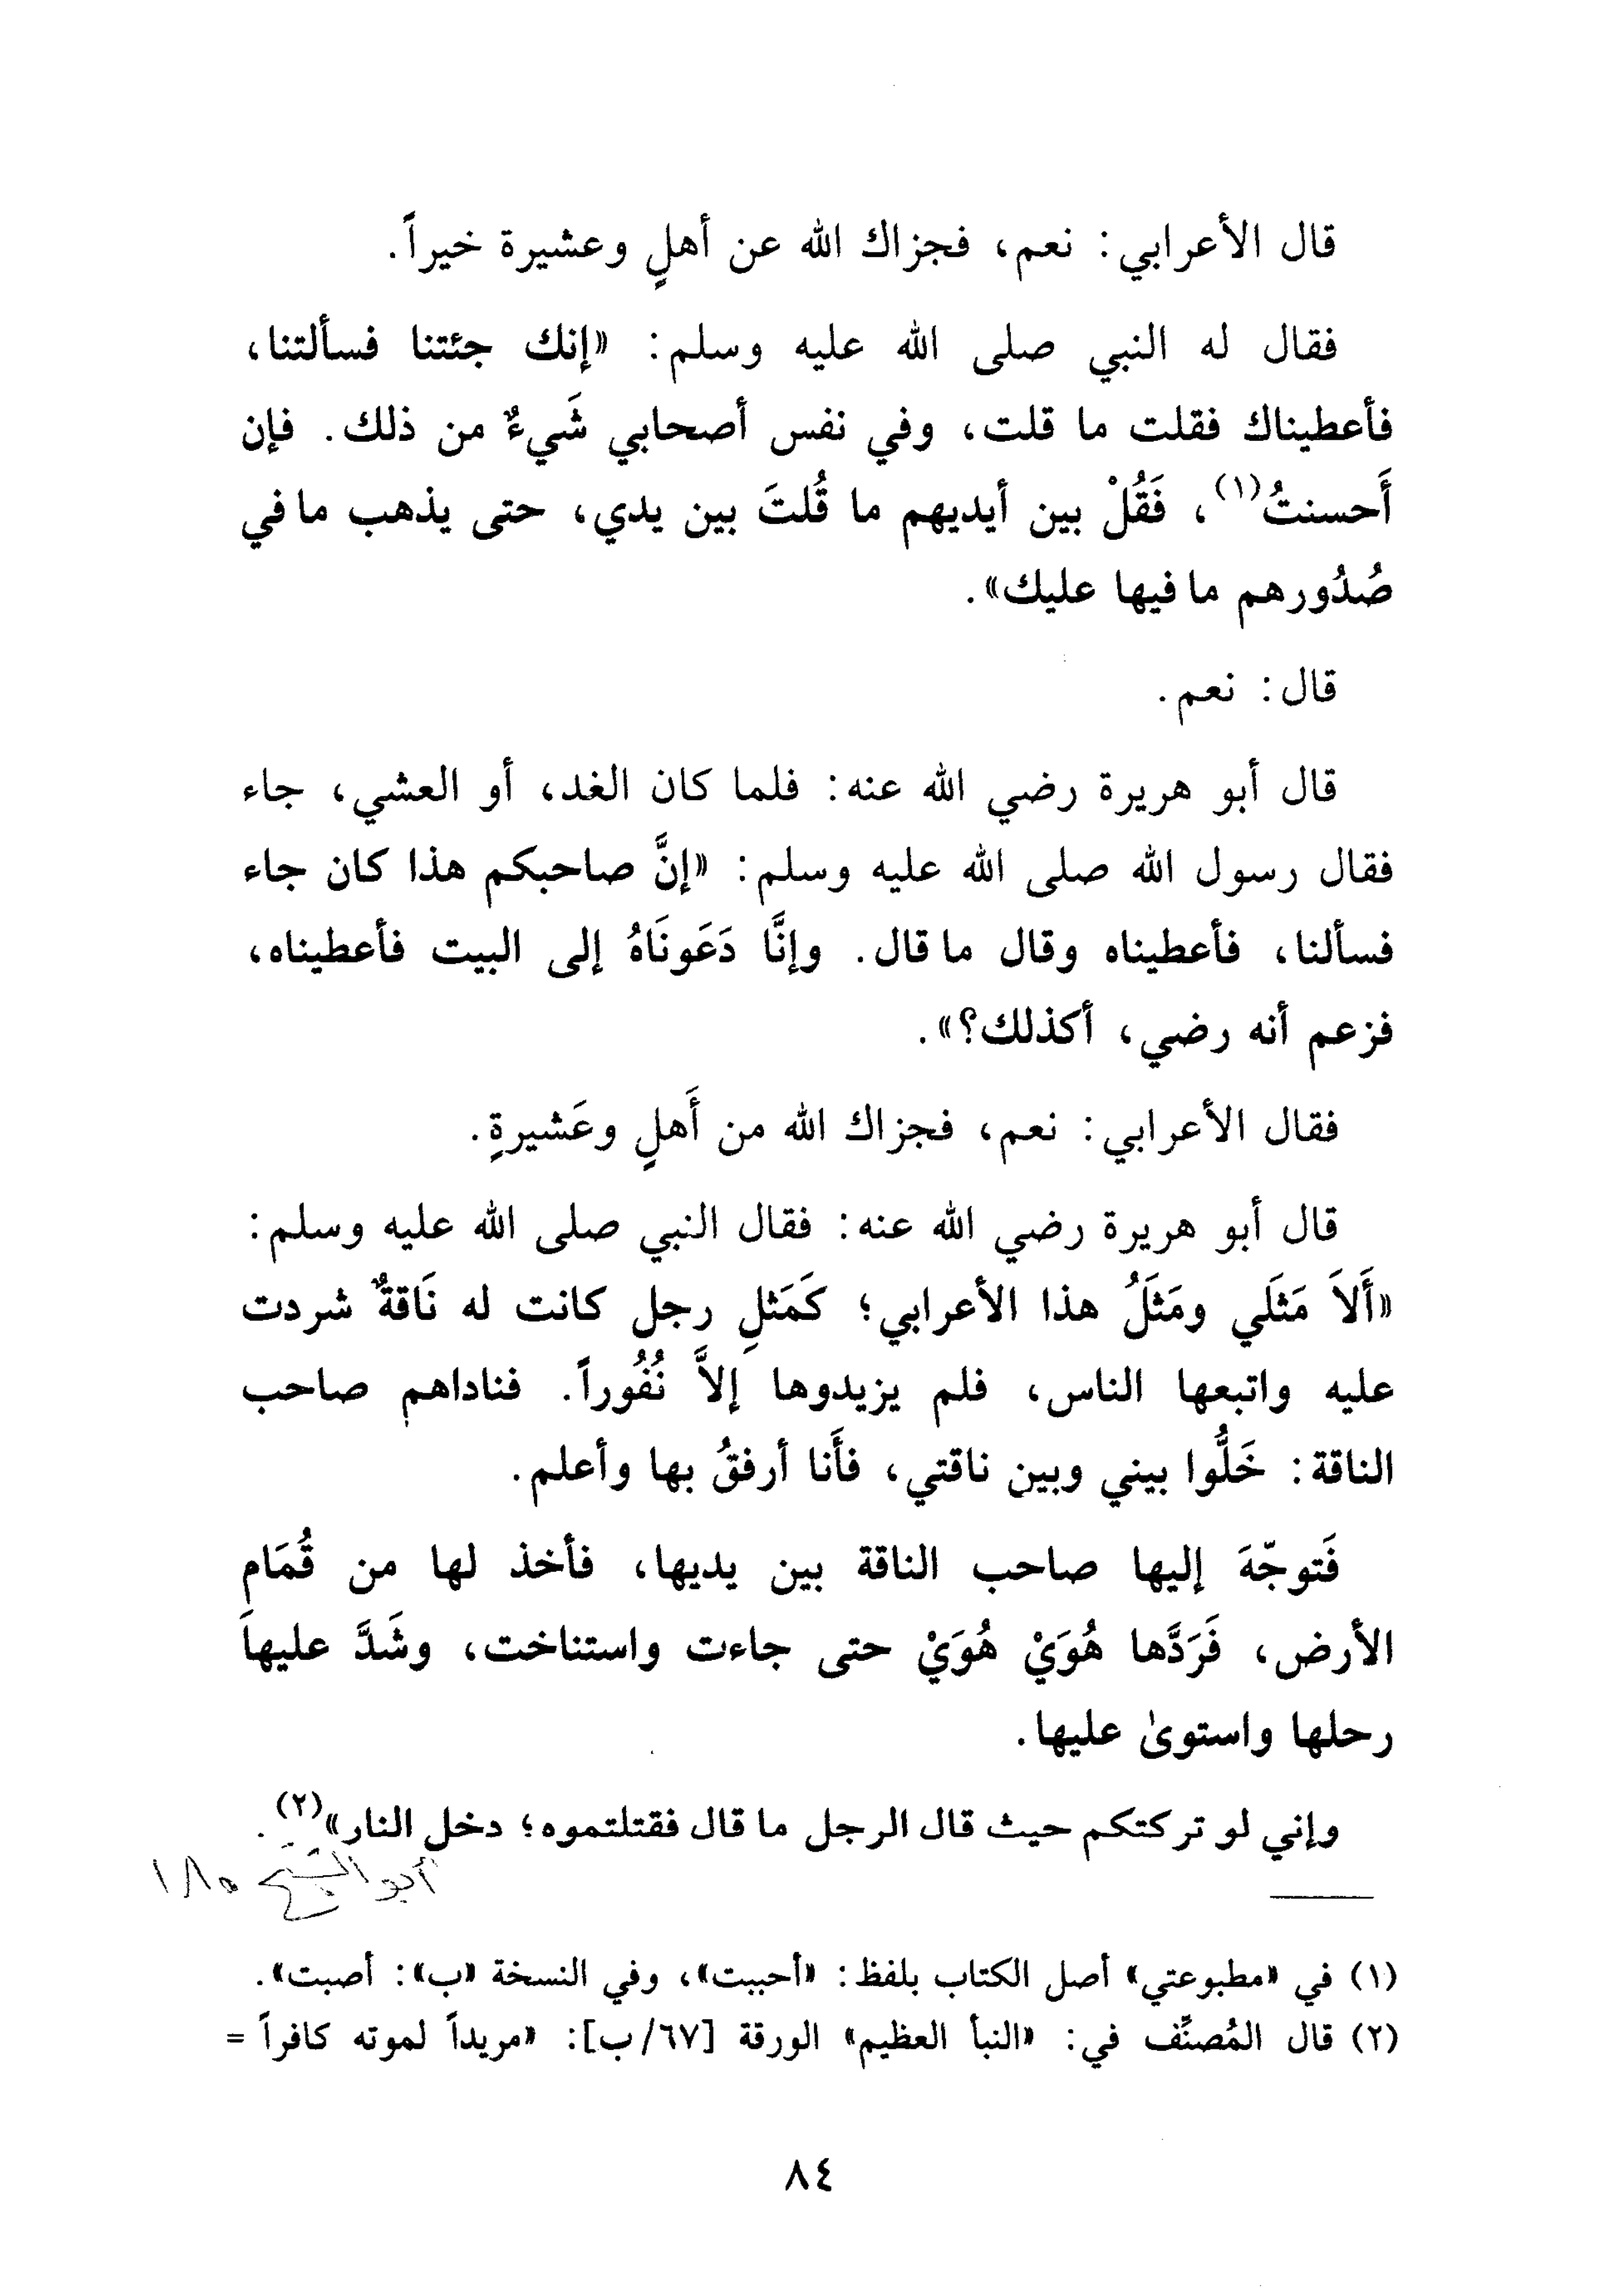 قال الأعرابي: نعم، فجزاك الله عن أهلٍ وعشيرة خيراً.
فقال له النبي صلى الله عليه وسلم: «إنك جئتنا فسألتنا،
فأعطيناك فقلت ما قلت، وفي نفس أصحابي شَيءٌ من ذلك. فإن
أَحسنتُ(١)، فَقُلْ بين أيديهم ما قُلتَ بين يدي، حتى يذهب ما في
صُدُورهم ما فيها عليك».
قال: نعم.
قال أبو هريرة رضي الله عنه: فلما كان الغد، أو العشي، جاء
فقال رسول الله صلى الله عليه وسلم: «إنَّ صاحبكم هذا كان جاء
فسألنا، فأعطيناه وقال ما قال. وإنَّا دَعَونَاهُ إلى البيت فأعطيناه،
فزعم أنه رضي، أكذلك؟».
فقال الأعرابي: نعم، فجزاك الله من أَهلٍ وعَشيرةٍ.
قال أبو هريرة رضي الله عنه: فقال النبي صلى الله عليه وسلم:
«أَلاَ مَثلَي ومَثلُ هذا الأعرابي؛ كَمَثلِ رجل كانت له نَاقةٌ شردت
عليه واتبعها الناس، فلم يزيدوها إلاَّ نُفُوراً. فناداهم صاحب
الناقة: خَلُّوا بيني وبين ناقتي، فأَنا أرفقُ بها وأعلم.
فَتوجّهَ إليها صاحب الناقة بين يديها، فأخذ لها من قُمَام
الأرض، فَرَدَّها هُوَيْ هُوَيْ حتى جاءت واستناخت، وشَدَّ عليهاَ
رحلها واستوىٰ عليها.
وإني لو تركتكم حيث قال الرجل ما قال فقتلتموه؛ دخل النار»(٢).
أبو الشيخ ١٨٥
(١) في «مطبوعتي» أصل الكتاب بلفظ: «أحببت»، وفي النسخة «ب»: أصبت».
(٢) قال المُصنِّف في: «النبأ العظيم» الورقة [٦٧/ب]: «مريداً لموته كافراً =
٨٤